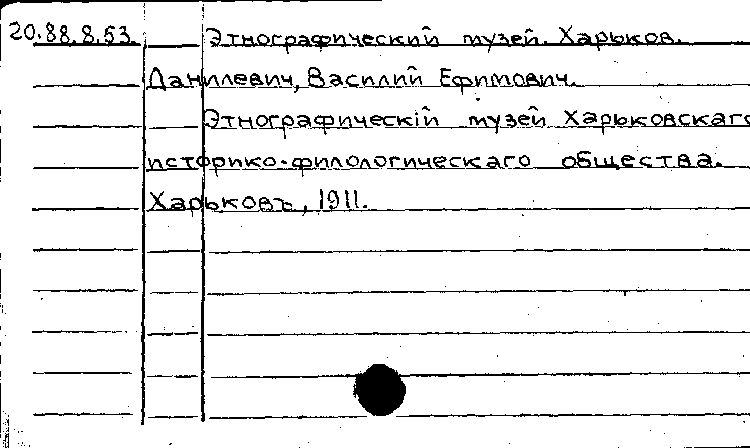 20.88.8.53. Этнографический музей. Харьков.
Данилевич, Василий Ефимович.
Этнографическій музей Харьковскаго
историко-филологическаго общества.
Харьковъ, 1911.